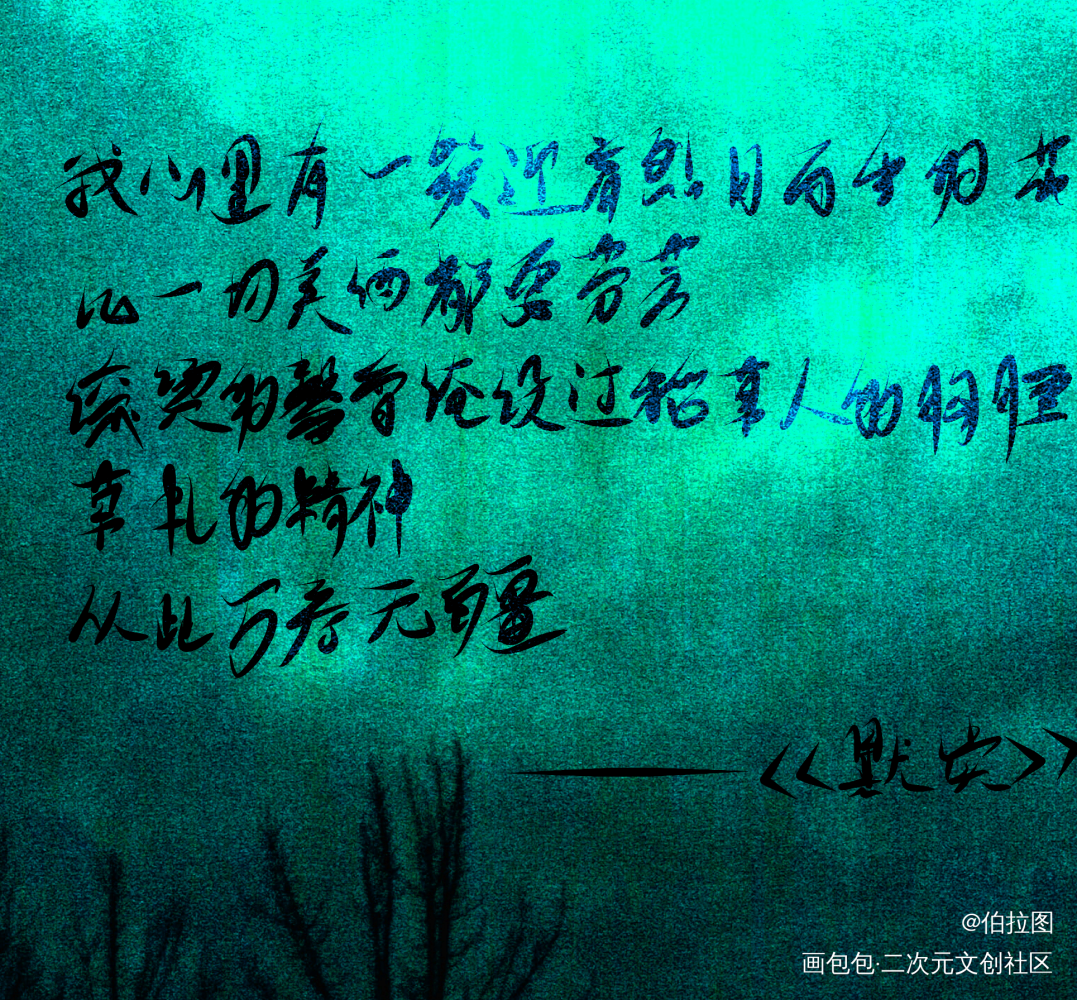 我心里有一簇迎着烈日而生的花
比一切美酒都要芬芳
滚烫的馨香淹没过稻草人的胸膛
草扎的精神
从此万寿无疆
——《默读》
@伯拉图
画包包·二次元文创社区